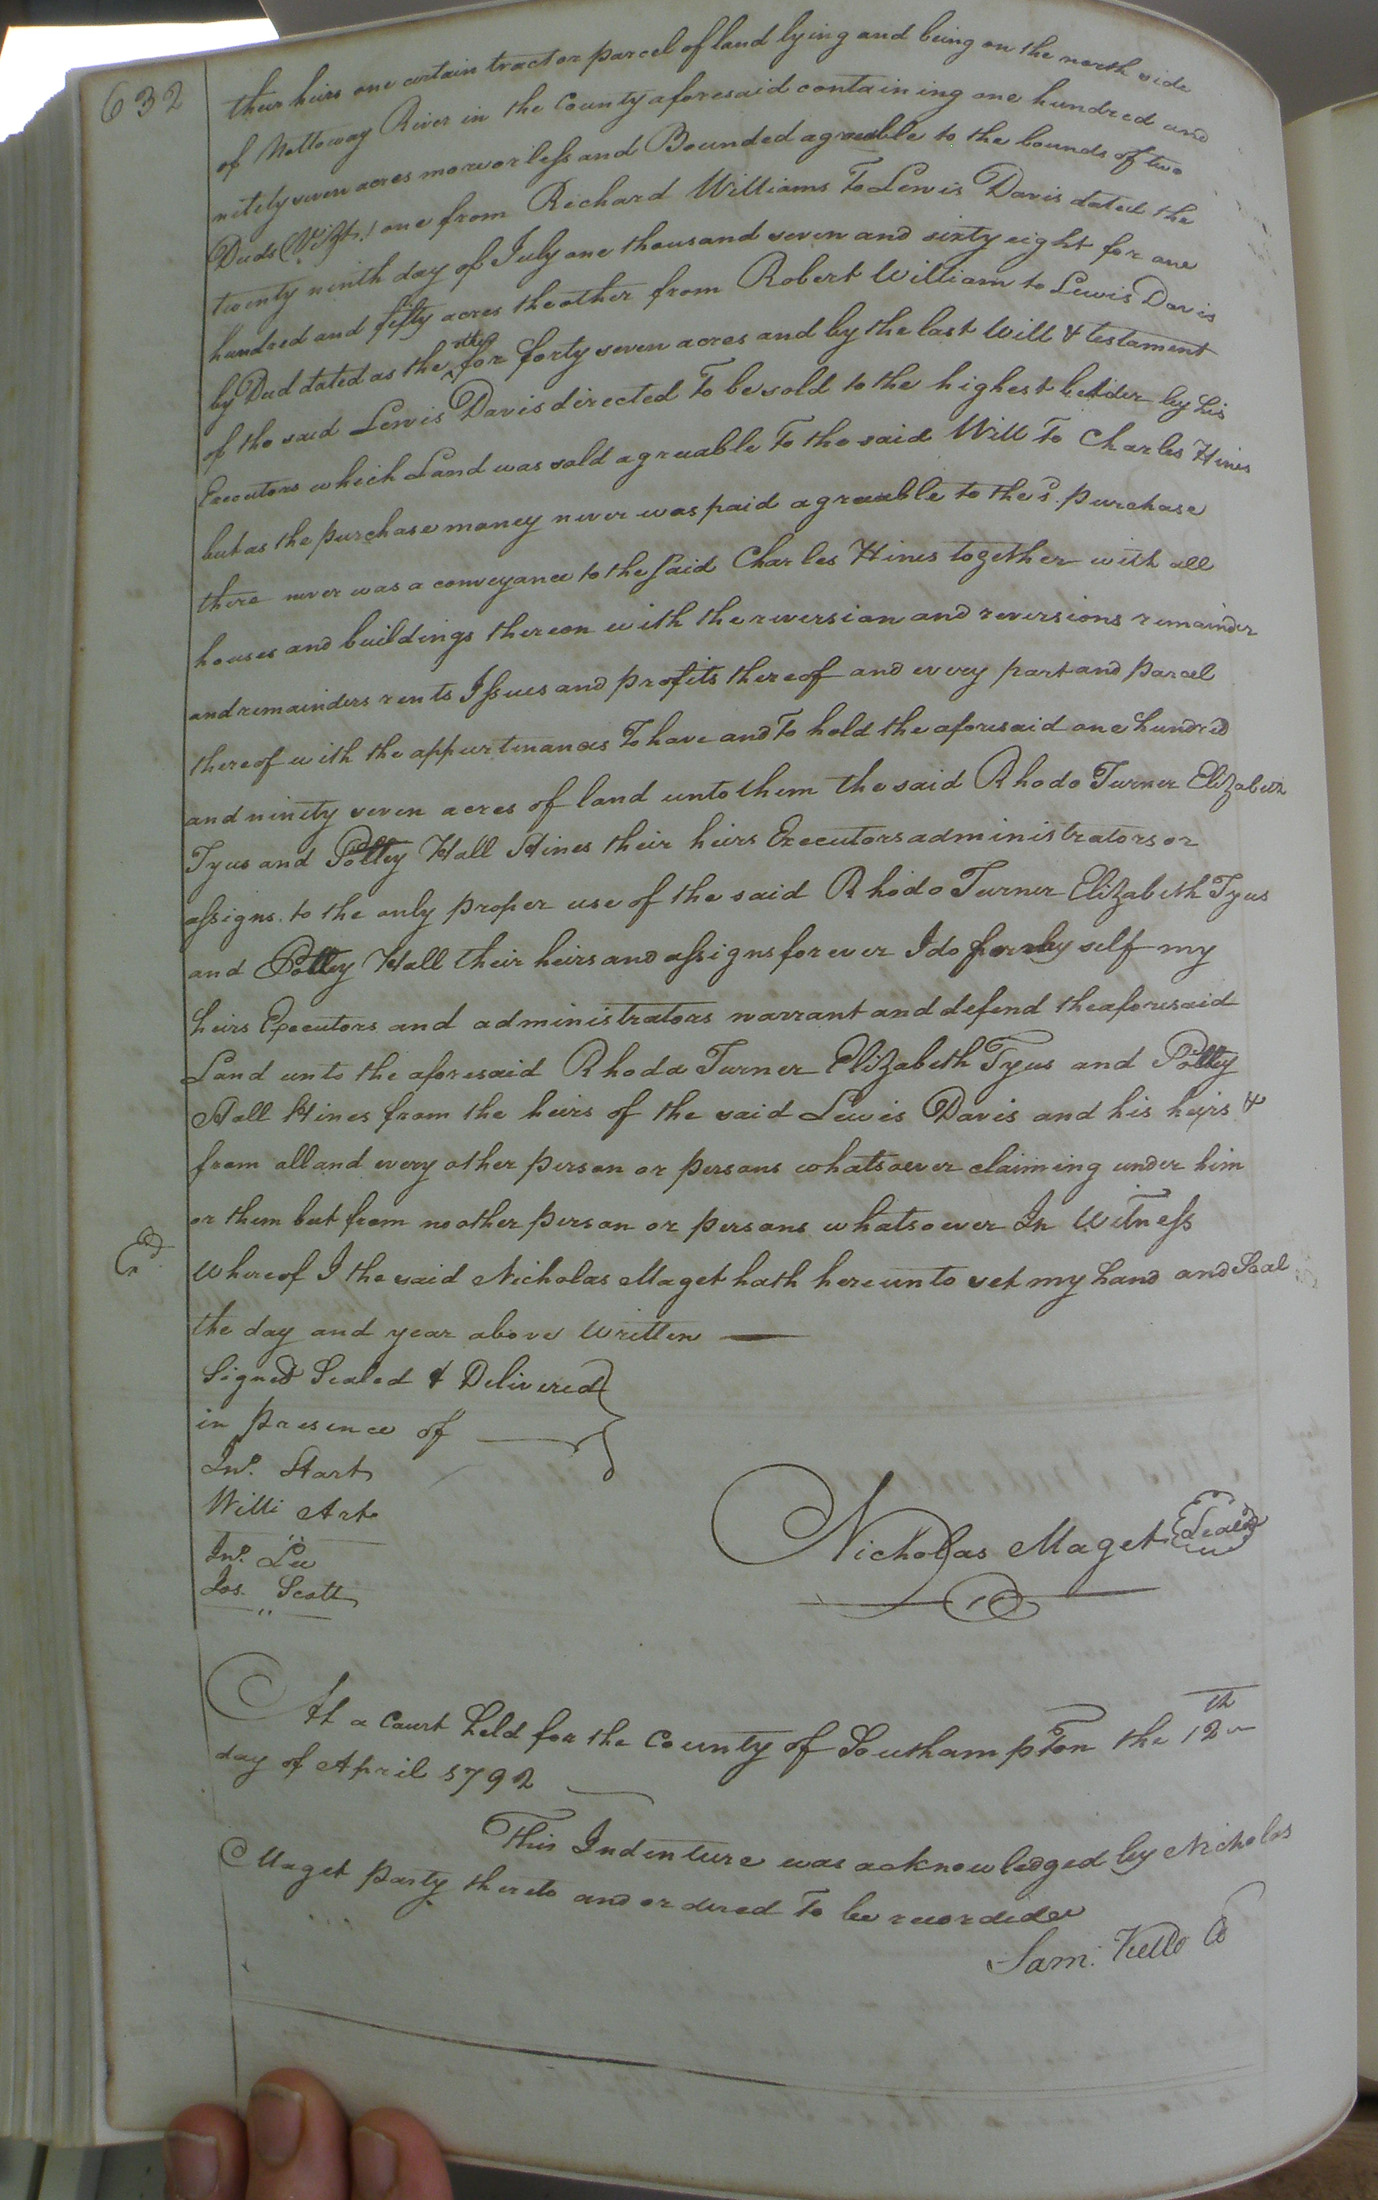 632
their heirs one certain tract or parcel of land lying and being on the north side
of Nottoway River in the County aforesaid containing one hundred and
nitely seven acres more or less and Bounded agreeable to the bounds of two
Deeds (Vizt.) one from Richard Williams To Lewis Davis dated the
twenty ninth day of July one thousand seven and sixty eight for one
hundred and fifty acres the other from Robert William to Lewis Davis
by Deed dated as the other for forty seven acres and by the last Will & testament
of the said Lewis Davis directed To be sold to the highest bidder by his
Executors which Land was sold agreeable To the said Will To Charles Hines
but as the purchase money never was paid agreeable to the sd. purchase
there never was a conveyance to the said Charles Hines together with all
houses and buildings thereon with the reversion and reversions remainder
and remainders rents Issues and profits thereof and every part and parcel
thereof with the appurtenances To have and To hold the aforesaid one hundred
and ninety seven acres of land unto them the said Rhoda Turner Elizabeth
Tyus and Polley Hall Hines their heirs Executors administrators or
assigns. to the only proper use of the said Rhoda Turner Elizabeth Tyus
and Polley Hall their heirs and assigns forever I do for my self my
heirs Executors and administrators warrant and defend the aforesaid
Land unto the aforesaid Rhoda Turner Elizabeth Tyus and Polley
Hall Hines from the heirs of the said Lewis Davis and his heirs &
from all and every other person or persons whatsoever claiming under him
or them but from no other person or persons whatsoever In Witness
Exd.
Whereof I the said Nicholas Maget hath hereunto set my hand and Seal
the day and year above Written
Signed Sealed & Delivered
in presence of
Jno. Hart
Willi Art
Jno. Lee
Jos. Scott
Nicholas Maget Seal
At a Court held for the County of Southampton the 12th
day of April 1792
This Indenture was acknowledged by Nicholas
Maget party thereto and ordered To be recorded
Sam: Kello